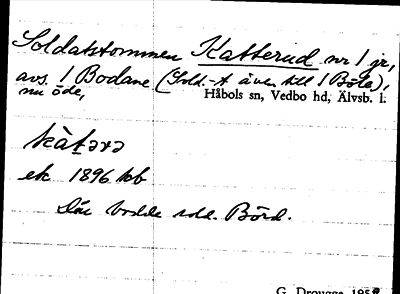 Soldatstommen Katterud nr 1 jr,
avs. 1 Bodane (Sold.-t även till 1 Böle),
nu öde,
Håbols sn, Vedbo hd, Älvsb. l.
kàt̠ərə
ek 1896 kb
Där bodde sold. Börd.
G. Drougge 195